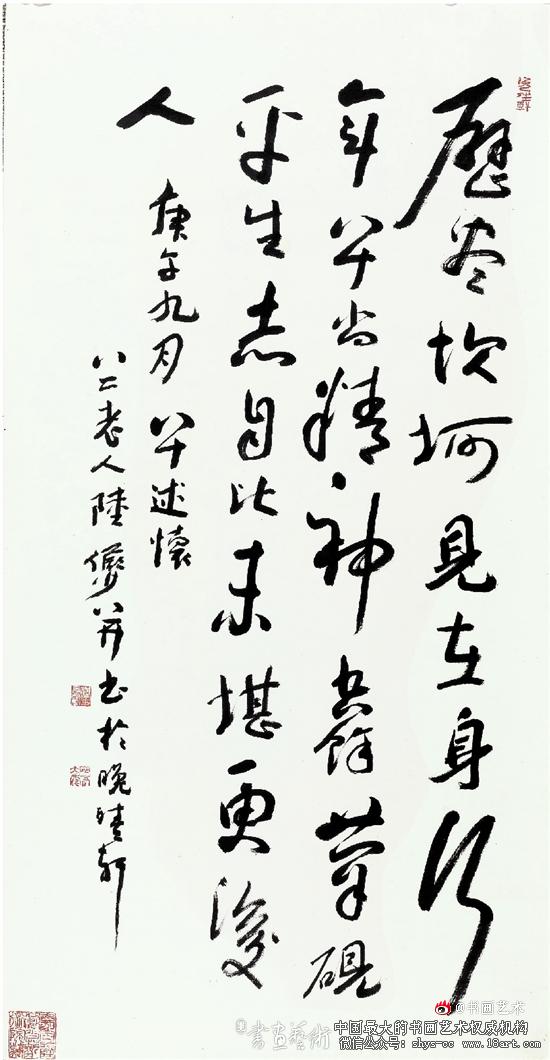 歷盡坎坷見在身行
年八十尚精神書餘筆硯
平生志自比未堪更後
人 庚午九月 八十述懷
八二老人陸儼少并書於晚晴軒
@书画艺术
書畫藝術
中国最大的书画艺术权威机构
微信公众号: shys-cc www.18art.com